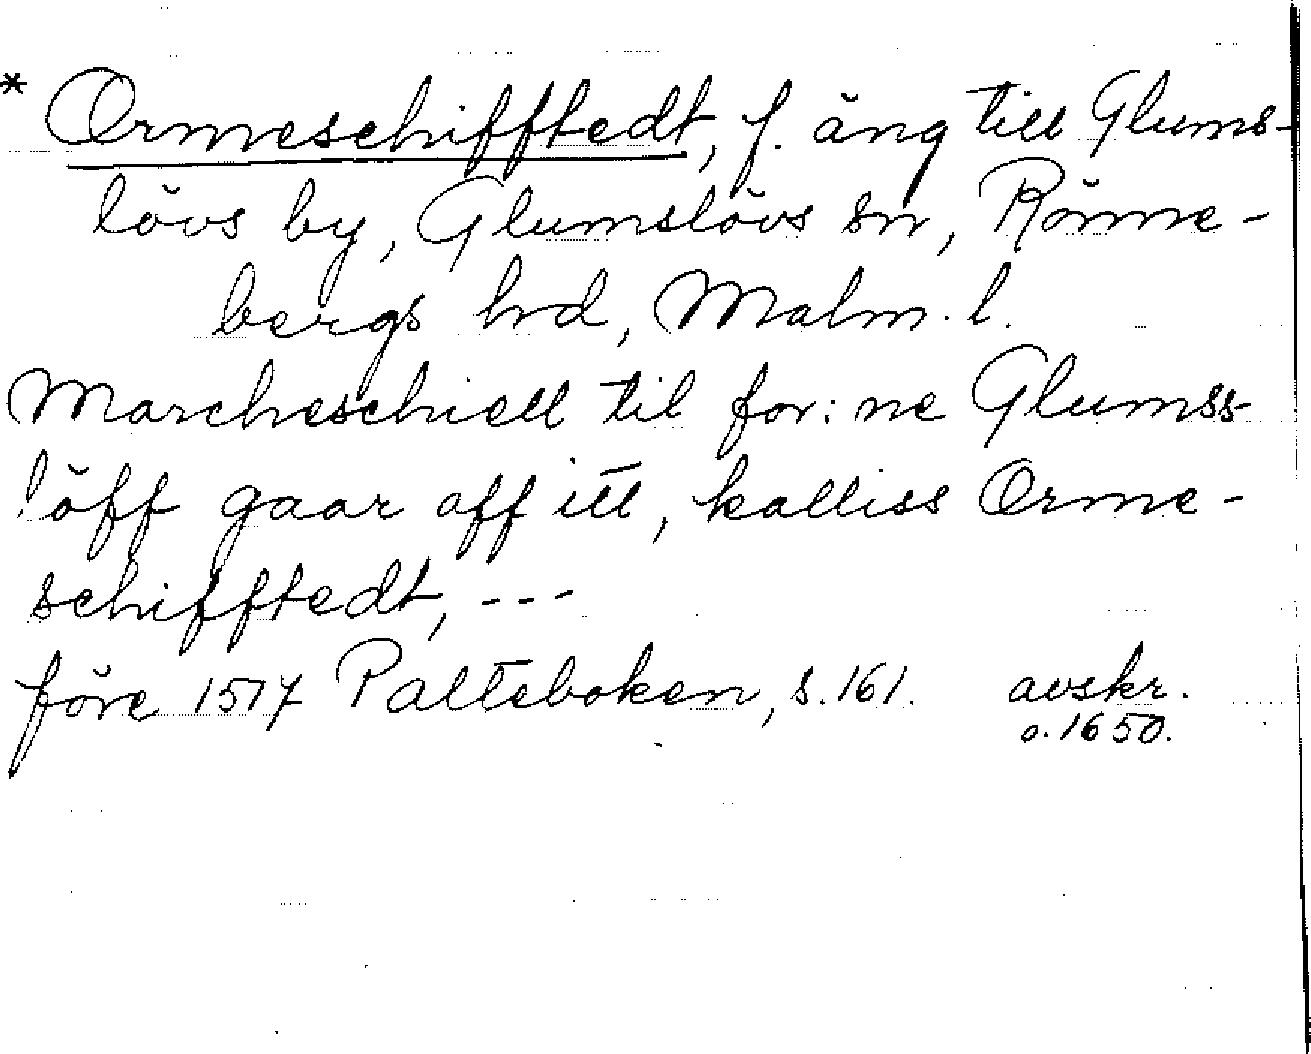 * Ormeschifftedt, f. äng till Glums-
lövs by, Glumslövs sn, Rönne-
bergs hd, Malm. l.
Marcheschiell til for: ne Glumss
löff gaar aff itt, kalliss Orme-
schifftedt, ---
före 1517 Palteboken, s. 161. avskr.
o. 1650.